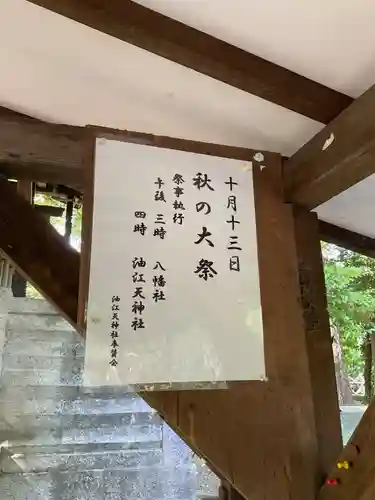 十月十三日
秋の大祭
祭事執行
午後 三時 八幡社
四時 油江天神社
油江天神社奉賛会